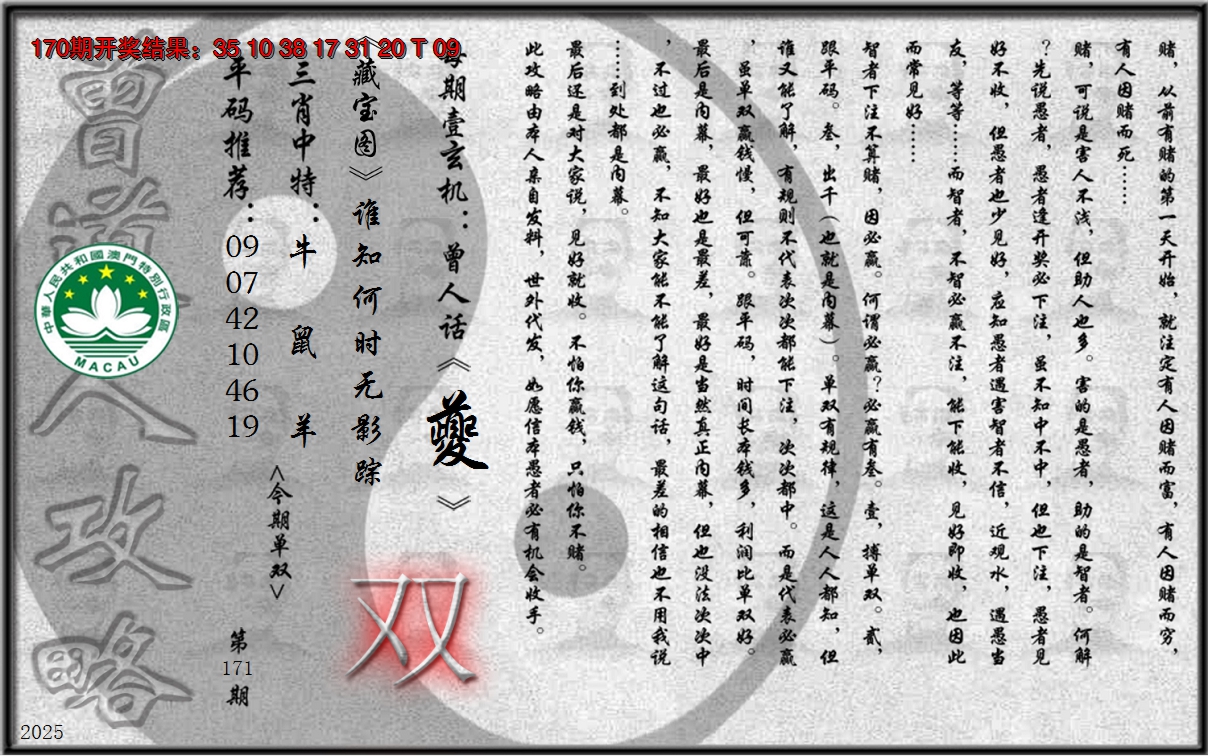 170期开奖结果：35 10 38 17 31 20 T 09
赌，从前有赌的第一天开始，就注定有人因赌而富，有人因赌而穷，
有人因赌而死……
赌，可说是害人不浅，但助人也多。害的是愚者，助的是智者。何解
？先说愚者，愚者逢开奖必下注，虽不知中不中，但也下注，愚者见
好不收，但愚者也少见好，应知愚者遇害智者不信，近观水，遇愚当
友，等等……而智者，不智必赢不注，能下能收，见好即收，也因此
而常见好……
智者下注不算赌，因必赢。何谓必赢？必赢有叁。壹，搏单双。贰，
跟平码。叁，出千（也就是内幕）。单双有规律，这是人人都知，但
谁又能了解，有规则不代表次次都能下注，次次都中。而是代表必赢
，虽单双赢钱慢，但可靠。跟平码，时间长本钱多，利润比单双好。
最后是内幕，最好也是最差，最好是当然真正内幕，但也没法次次中
，不过也必赢，不知大家能不能了解这句话，最差的相信也不用我说
……到处都是内幕。
最后还是对大家说，见好就收。不怕你赢钱，只怕你不赌。
此攻略由本人亲自发料，世外代发，如愿信本愚者必有机会收手。
每期壹玄机：曾人话《夔》
《藏宝图》谁知何时无影踪
双
三肖中特：牛 鼠 羊
<今期单双>
平码推荐：09 07 42 10 46 19
第171期
曾道人攻略
中華人民共和國澳門特別行政區
MACAU
2025